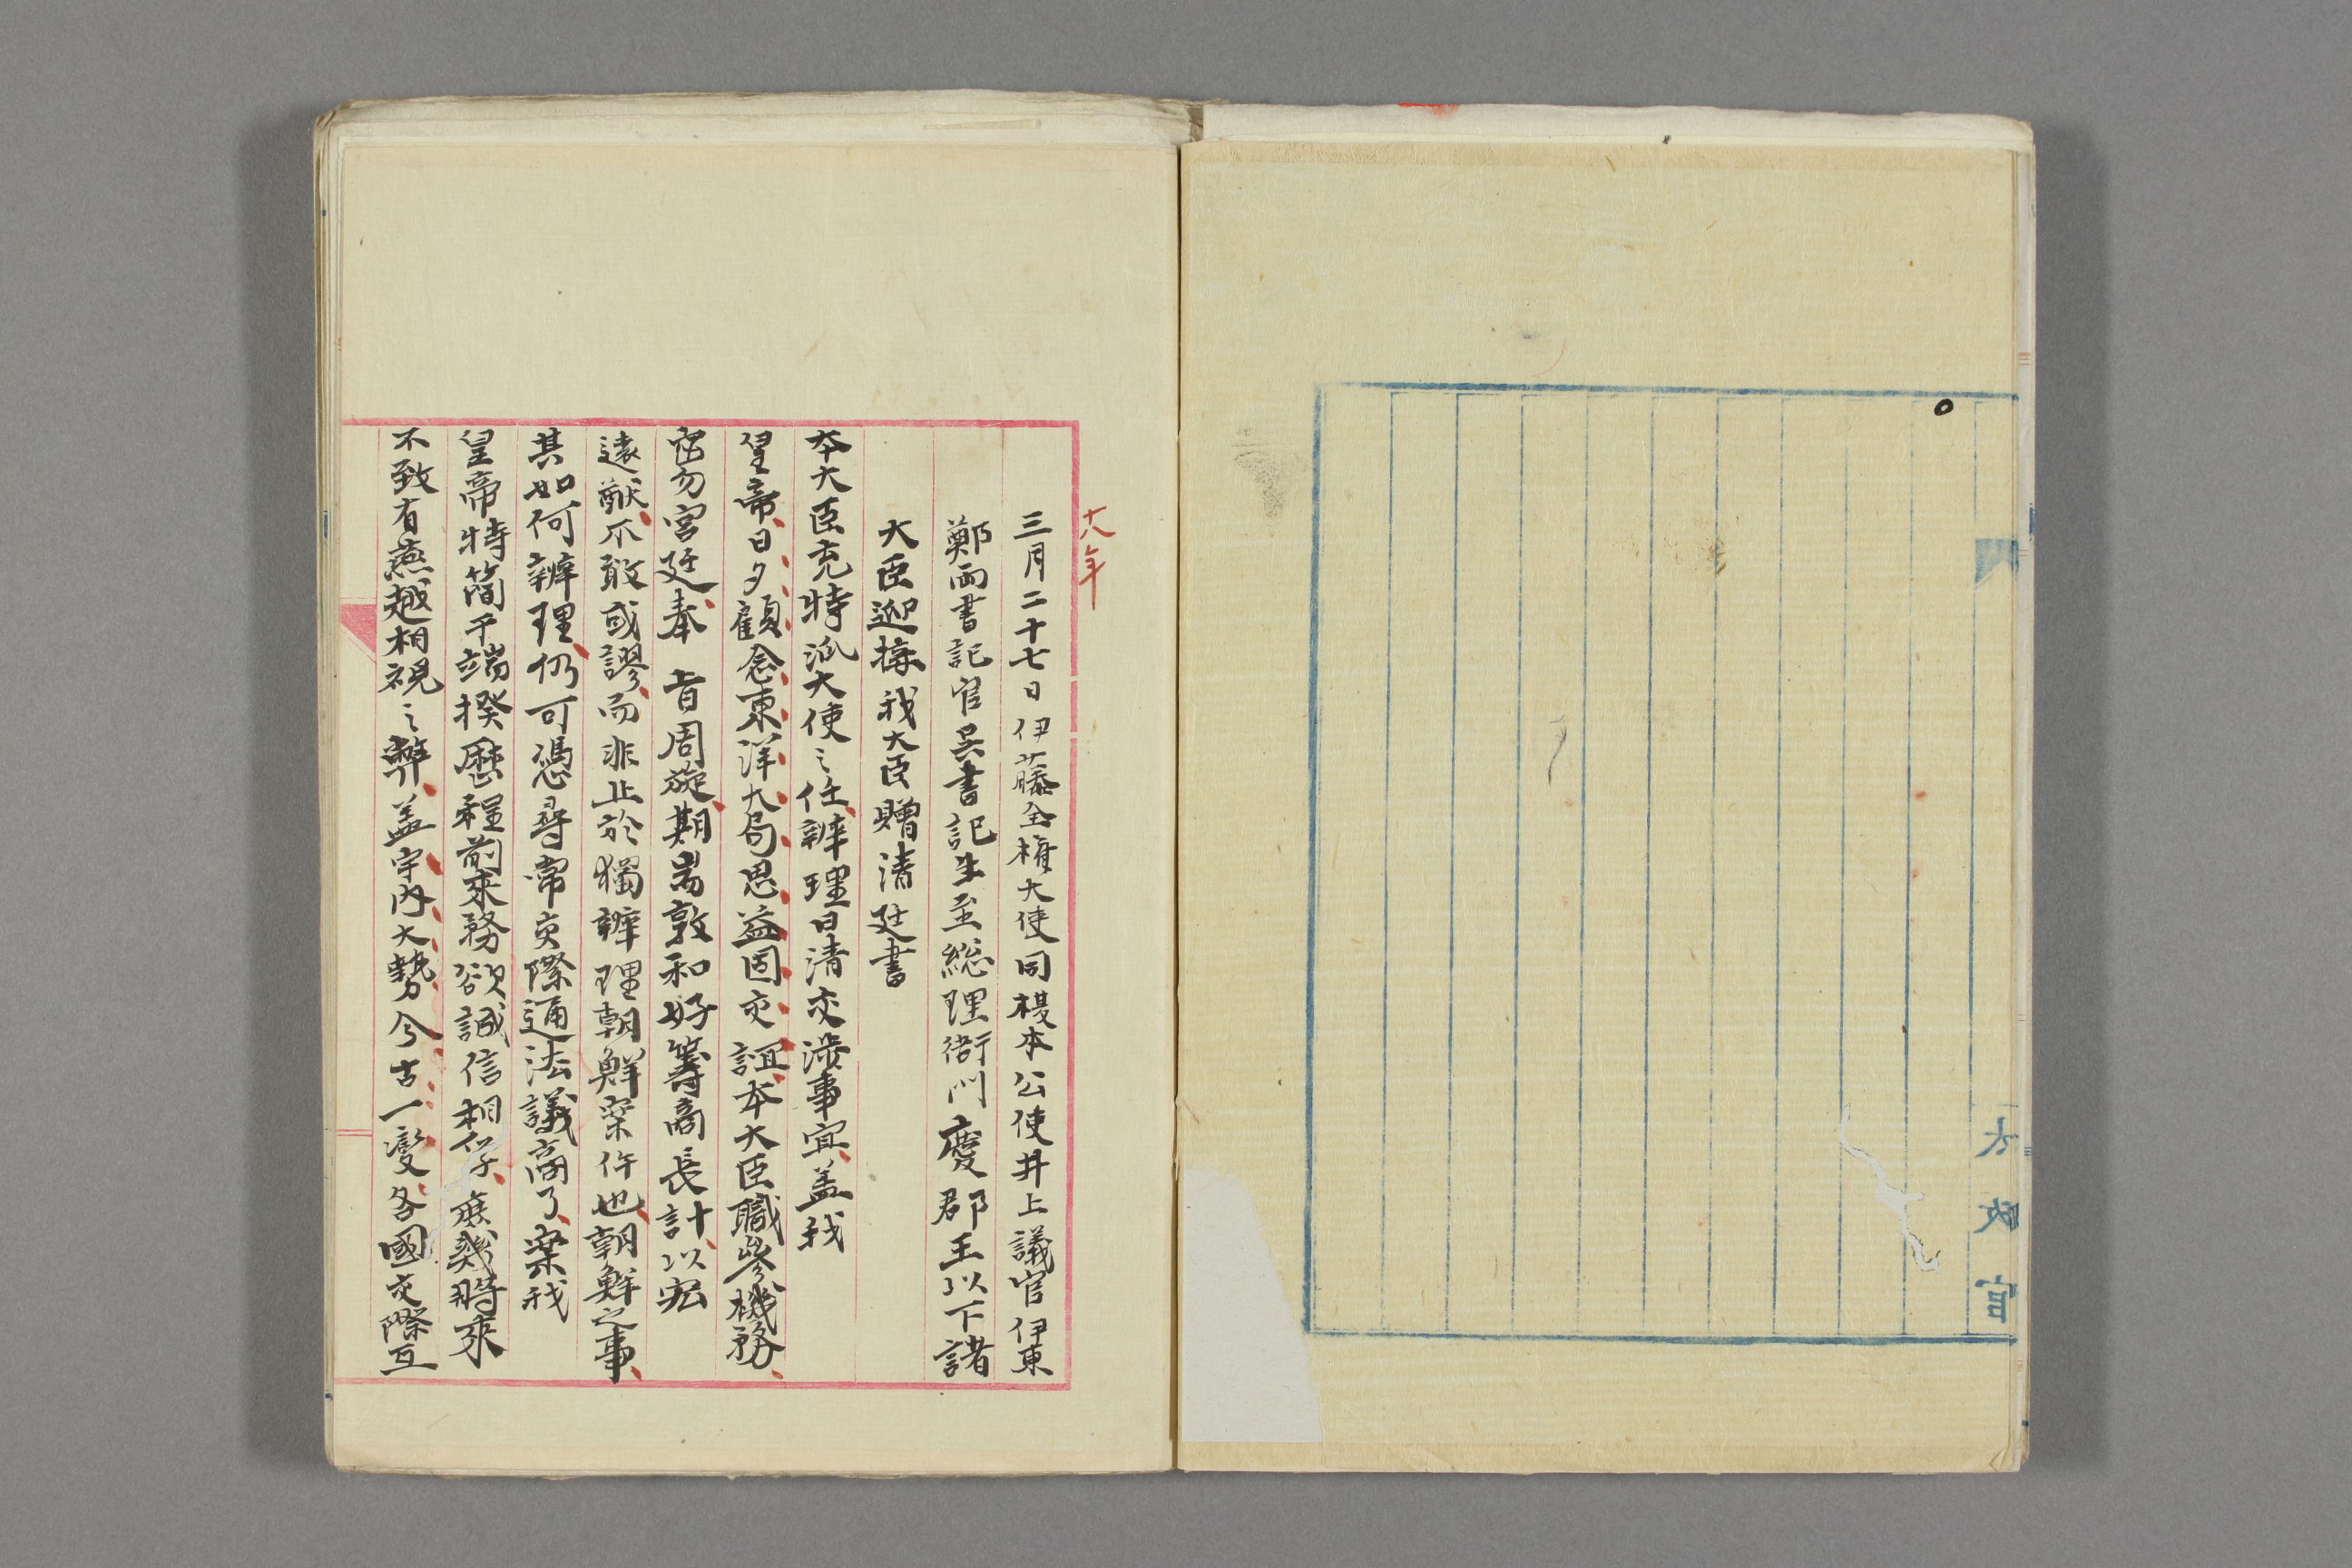 十八年
三月二十七日伊藤全権大使同榎本公使井上議官伊東
鄭両書記官呉書記生至総理衙門慶郡王以下諸
大臣迎接我大臣贈清廷書
本大臣充特派大使之任辦理日清交渉事宜盖我
皇帝日夕顧念東洋大局思益固交誼本大臣職參機務
密勿宮廷奉 旨周旋期共敦和好籌商長計以宏
遠猷不敢或謬而非止於獨辦理朝鮮案件也朝鮮之事
其如何辦理仍可憑尋常交際通法議商了案我
皇帝特簡予端揆歴程前來務欲誠信相孚庶幾將來
不致有燕越相視之弊盖宇内大勢今古一變各國交際互
太政官